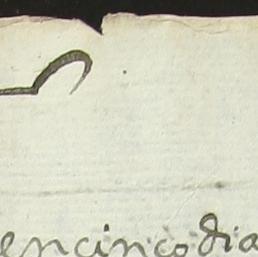 en cinco dia